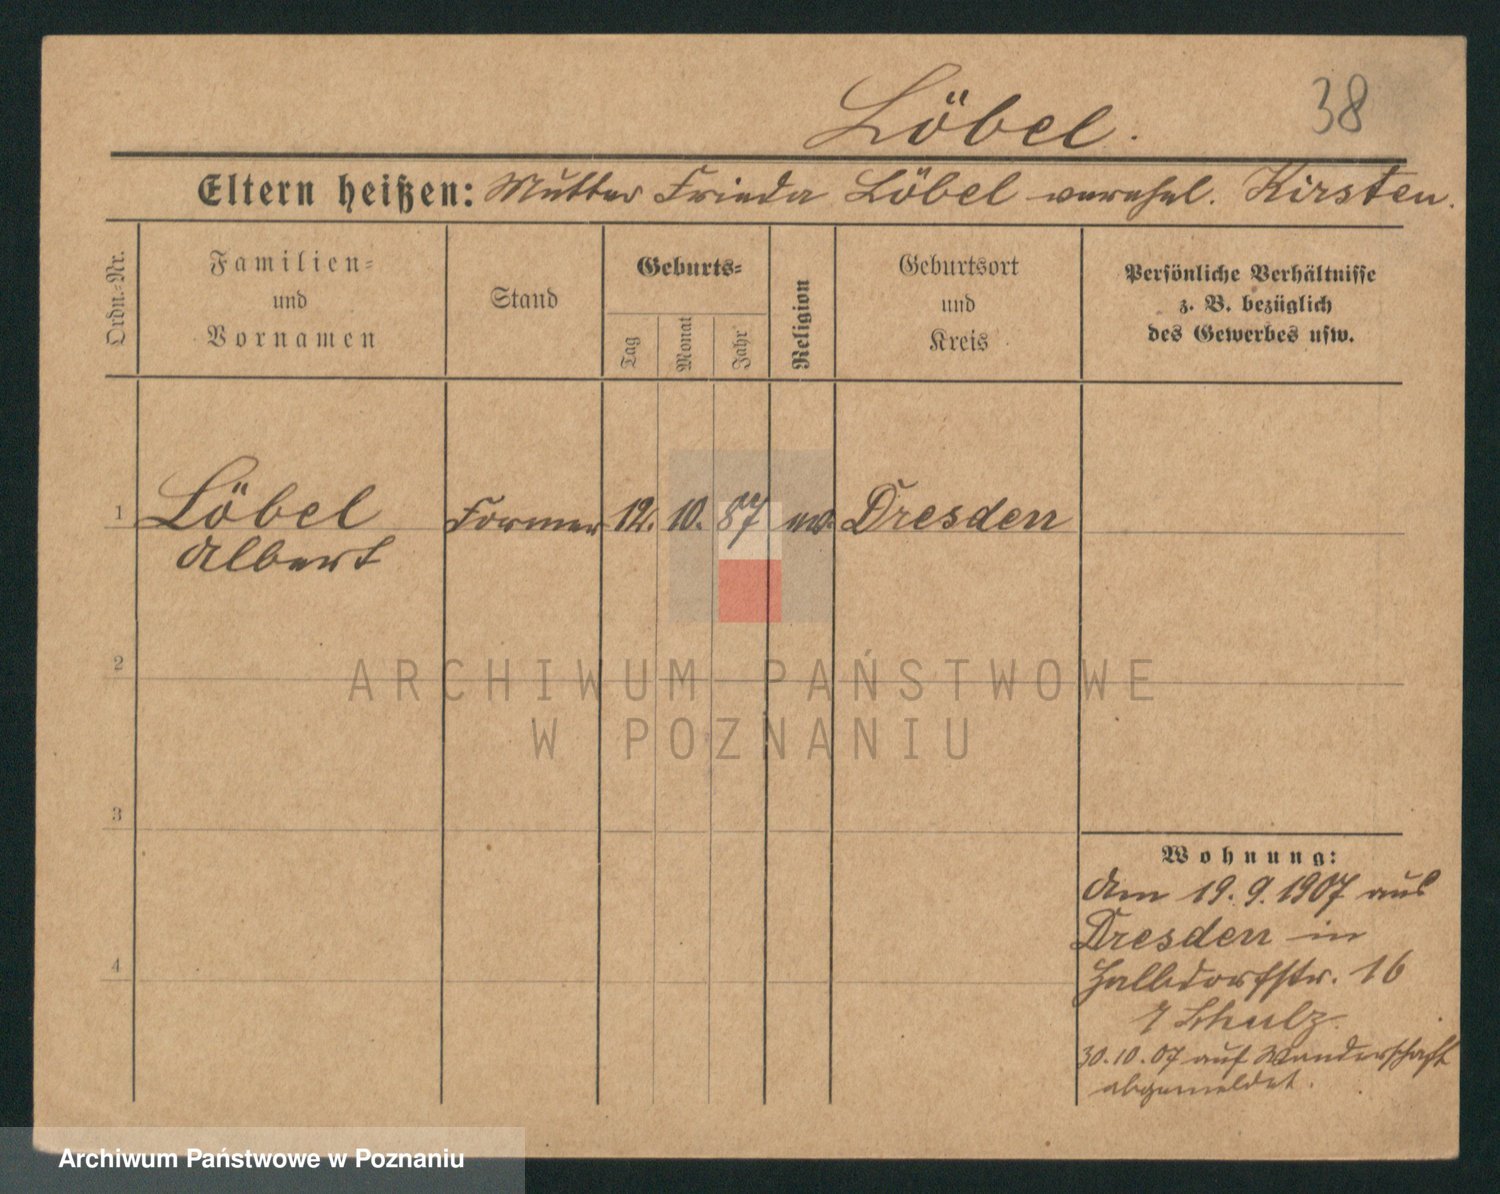 38
Löbel.
Eltern heißen: Mutter Frieda Löbel verehel. Kirsten.
Ordn.-Nr.
Familien-
und
Vornamen
Stand
Geburts-
Tag
Monat
Jahr
Religion
Geburtsort
und
Kreis
Persönliche Verhältnisse
z. B. bezüglich
des Gewerbes usw.
1 Löbel Former 12. 10. 87 ev. Dresden
Albert
2
3
4
Wohnung:
Am 19. 9. 1907 aus
Dresden in
Halbdorfstr. 16
Schulz.
30.10.07 auf Wanderschaft
abgemeldet.
ARCHIWUM PAŃSTWOWE
W POZNANIU
Archiwum Państwowe w Poznaniu